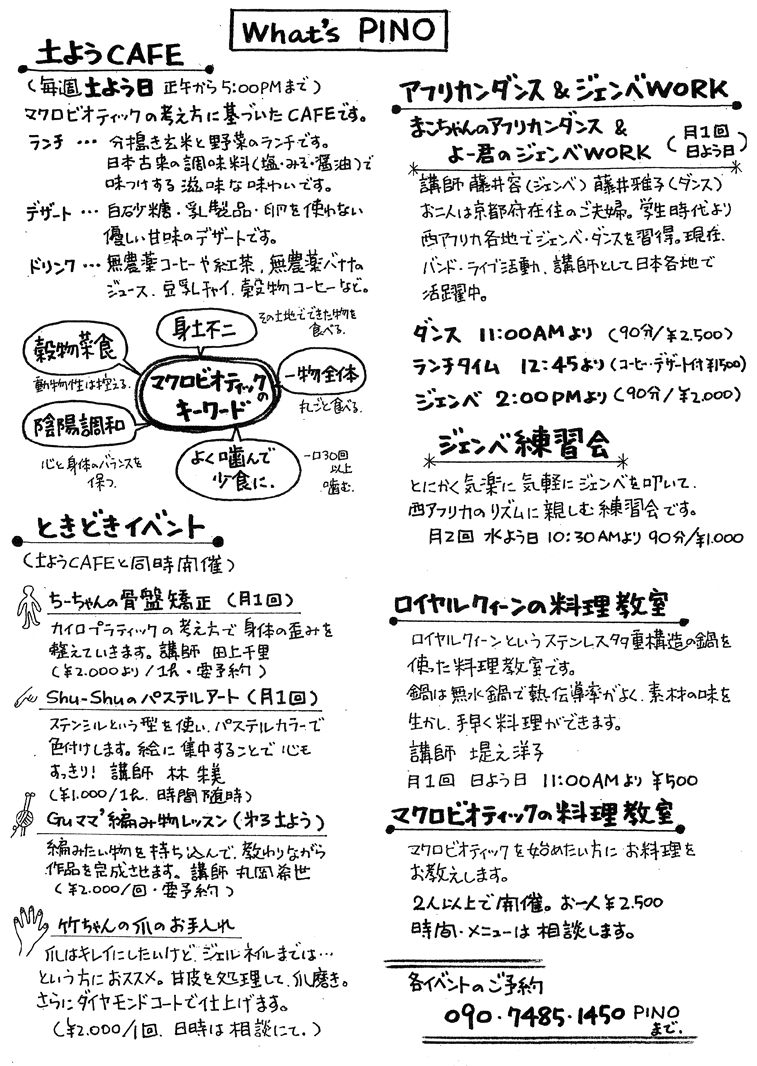 What's PINO
土ようCAFE
(毎週土よう日 正午から5:00PMまで)
マクロビオティックの考え方に基づいたCAFEです。
ランチ … 分搗き玄米と野菜のランチです。
日本古来の調味料(塩・みそ・醤油)で
味つけする滋味な味わいです。
デザート … 白砂糖・乳製品・卵を使わない
優しい甘味のデザートです。
ドリンク … 無農薬コーヒーや紅茶、無農薬バナナの
ジュース、豆乳チャイ、穀物コーヒーなど。
身土不二
その土地でできた物を
食べる。
穀物菜食
動物性は控える。
マクロビオティックの
キーワード
一物全体
丸ごと食べる。
陰陽調和
心と身体のバランスを
保つ。
よく噛んで
少食に。
一口30回
以上
噛む。
ときどきイベント
(土ようCAFEと同時開催)
ちーちゃんの骨盤矯正 (月1回)
カイロプラティックの考え方で身体の歪みを
整えていきます。講師 田上千里
(¥2.000より/1名・要予約)
Shu-Shuのパステルアート(月1回)
ステンシルという型を使い、パステルカラーで
色付けします。絵に集中することで心も
すっきり! 講師 林 朱美
(¥1.000/1名、時間随時)
Guママ'編み物レッスン(第3土よう)
編みたい物を持ち込んで、教わりながら
作品を完成させます。講師 丸岡希世
(¥2.000/回・要予約)
竹ちゃんの爪のお手入れ
爪はキレイにしたいけど、ジェルネイルまでは…
という方におススメ。甘皮を処理して、爪磨き。
さらにダイヤモンドコートで仕上げます。
(¥2.000/1回、日時は相談にて。)
アフリカンダンス&ジェンベWORK
まこちゃんのアフリカンダンス &
よー君のジェンベWORK (月1回
日よう日)
講師 藤井容(ジェンベ) 藤井雅子(ダンス)
お二人は京都府在住のご夫婦。学生時代より
西アフリカ各地でジェンベ・ダンスを習得。現在、
バンド・ライブ活動、講師として日本各地で
活躍中。
ダンス 11:00AMより (90分/¥2.500)
ランチタイム 12:45より(コーヒー・デザート付¥1500)
ジェンベ 2:00PMより(90分/¥2.000)
ジェンベ練習会
とにかく気楽に気軽にジェンベを叩いて、
西アフリカのリズムに親しむ練習会です。
月2回 水よう日 10:30AMより90分/¥1.000
ロイヤルクィーンの料理教室
ロイヤルクィーンというステンレス多重構造の鍋を
使った料理教室です。
鍋は無水鍋で熱伝導率がよく、素材の味を
生かし、手早く料理ができます。
講師 堤え洋子
月1回 日よう日 11:00AMより ¥500
マクロビオティックの料理教室
マクロビオティックを始めたい方にお料理を
お教えします。
2人以上で開催。お一人¥2.500
時間・メニューは相談します。
各イベントのご予約
090・7485・1450 PINO
まで。